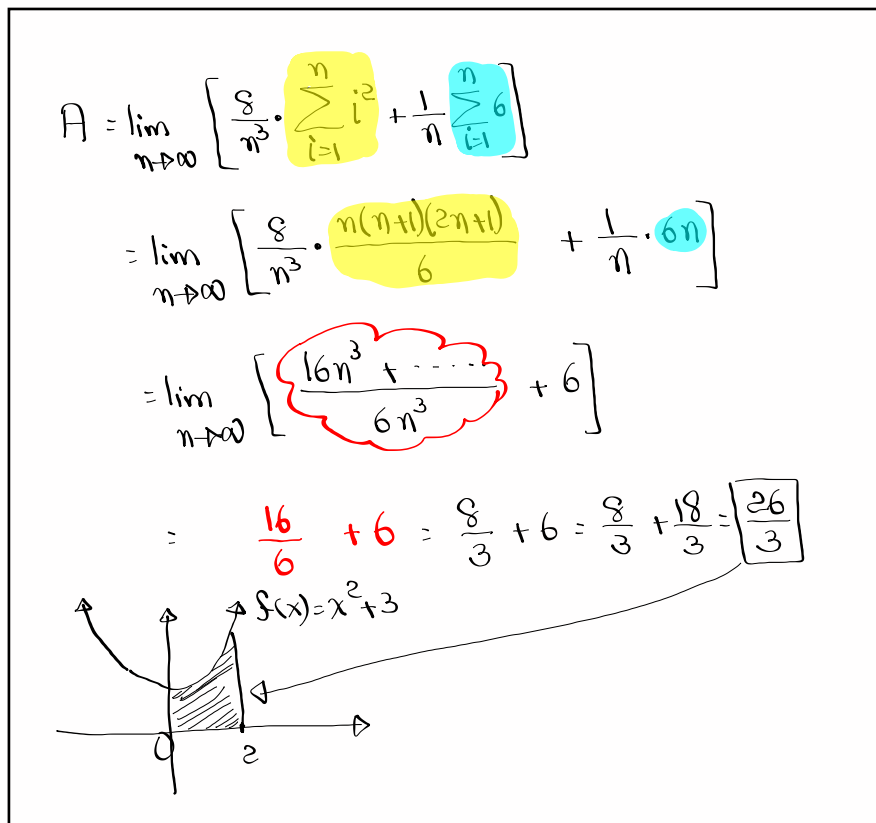 A = lim n→∞ [ 8/n³ · ∑ i=1 n i² + 1/n ∑ i=1 n 6 ]
= lim n→∞ [ 8/n³ · n(n+1)(2n+1)/6 + 1/n · 6n ]
= lim n→∞ [ 16n³ + ····· / 6n³ + 6 ]
= 16/6 + 6 = 8/3 + 6 = 8/3 + 18/3 = 26/3
f(x) = x² + 3
0 2